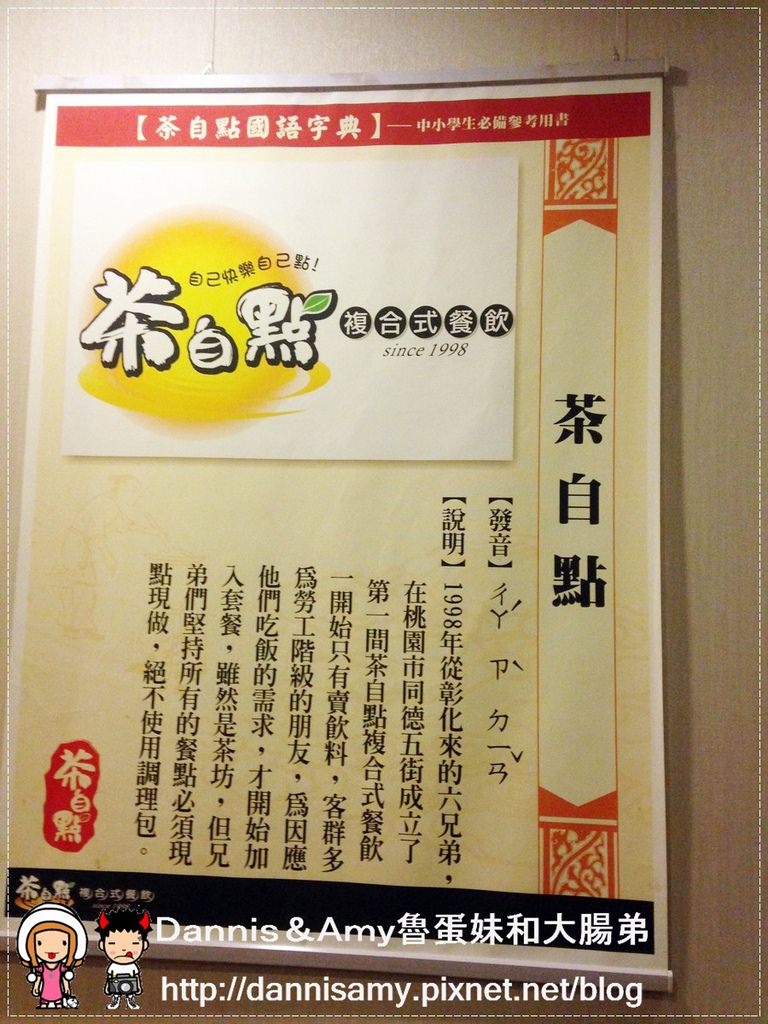 【茶自點國語字典】—中小學生必備參考用書
自己快樂自己點!
茶自點
複合式餐飲
since 1998
茶自點
【發音】ㄔㄚˊ ㄗˋ ㄉㄧㄢˇ
【說明】1998年從彰化來的六兄弟，
在桃園市同德五街成立了
第一間茶自點複合式餐飲
一開始只有賣飲料，客群多
為勞工階級的朋友，為因應
他們吃飯的需求，才開始加
入套餐，雖然是茶坊，但兄
弟們堅持所有的餐點必須現
點現做，絕不使用調理包。
茶自點
茶自點 複合式餐飲
since 1998
Dannis&Amy魯蛋妹和大腸弟
http://dannisamy.pixnet.net/blog